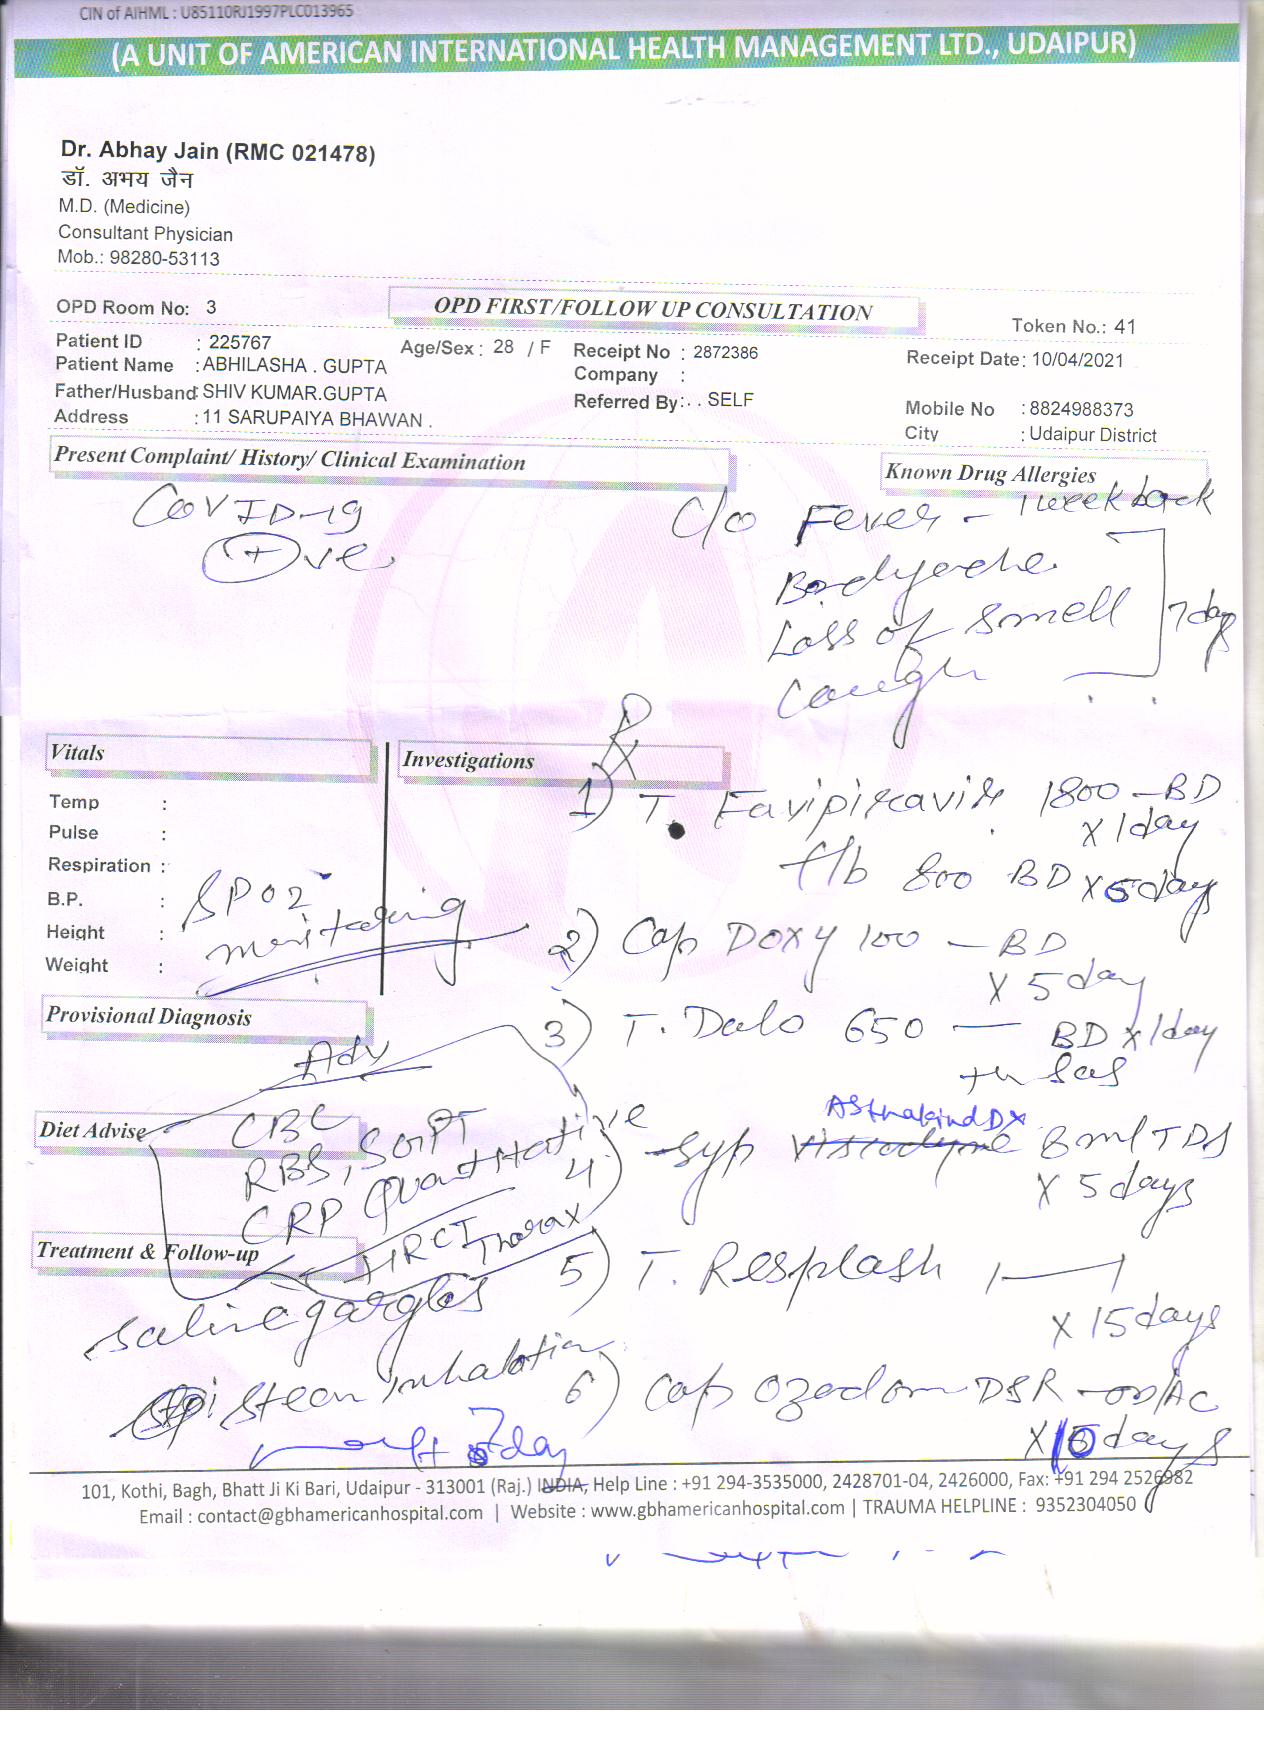 CIN of AIHML : U85110RJ1997PLC013965
(A UNIT OF AMERICAN INTERNATIONAL HEALTH MANAGEMENT LTD., UDAIPUR)
Dr. Abhay Jain (RMC 021478)
डॉ. अभय जैन
M.D. (Medicine)
Consultant Physician
Mob.: 98280-53113
OPD Room No: 3
OPD FIRST/FOLLOW UP CONSULTATION
Token No.: 41
Patient ID : 225767
Age/Sex : 28 / F
Receipt No : 2872386
Receipt Date: 10/04/2021
Patient Name :ABHILASHA . GUPTA
Company :
Father/Husband: SHIV KUMAR.GUPTA
Referred By:. . SELF
Mobile No : 8824988373
Address : 11 SARUPAIYA BHAWAN .
City : Udaipur District
Present Complaint/ History/ Clinical Examination
Known Drug Allergies
COVID-19
+ ve
C/o Fever - 1 week back
Bodyache
Loss of Smell
7 days
Cough
Vitals
Investigations
Rx
Temp :
Pulse :
Respiration :
B.P. :
Height :
Weight :
SPO2
monitoring
1) T. Favipiravir 1800 - BD
x 1 day
f/b 800 BD x 6 days
2) Cap Doxy 100 - BD
x 5 day
Provisional Diagnosis
3) T. Dolo 650 — BD x 1 day
Adv
CBC
RBS, SGPT
CRP Quantitative
HRCT Thorax
Diet Advise
4) Syp AsthakindDX 8 ml TDS
x 5 days
Treatment & Follow-up
5) T. Resplash 1 — 1
x 15 days
saline gargles
Steam inhalation
6) Cap Ozodom DSR - OD/AC
x 10 days
7 day
101, Kothi, Bagh, Bhatt Ji Ki Bari, Udaipur - 313001 (Raj.) INDIA, Help Line : +91 294-3535000, 2428701-04, 2426000, Fax: +91 294 2526982
Email : contact@gbhamericanhospital.com | Website : www.gbhamericanhospital.com | TRAUMA HELPLINE : 9352304050